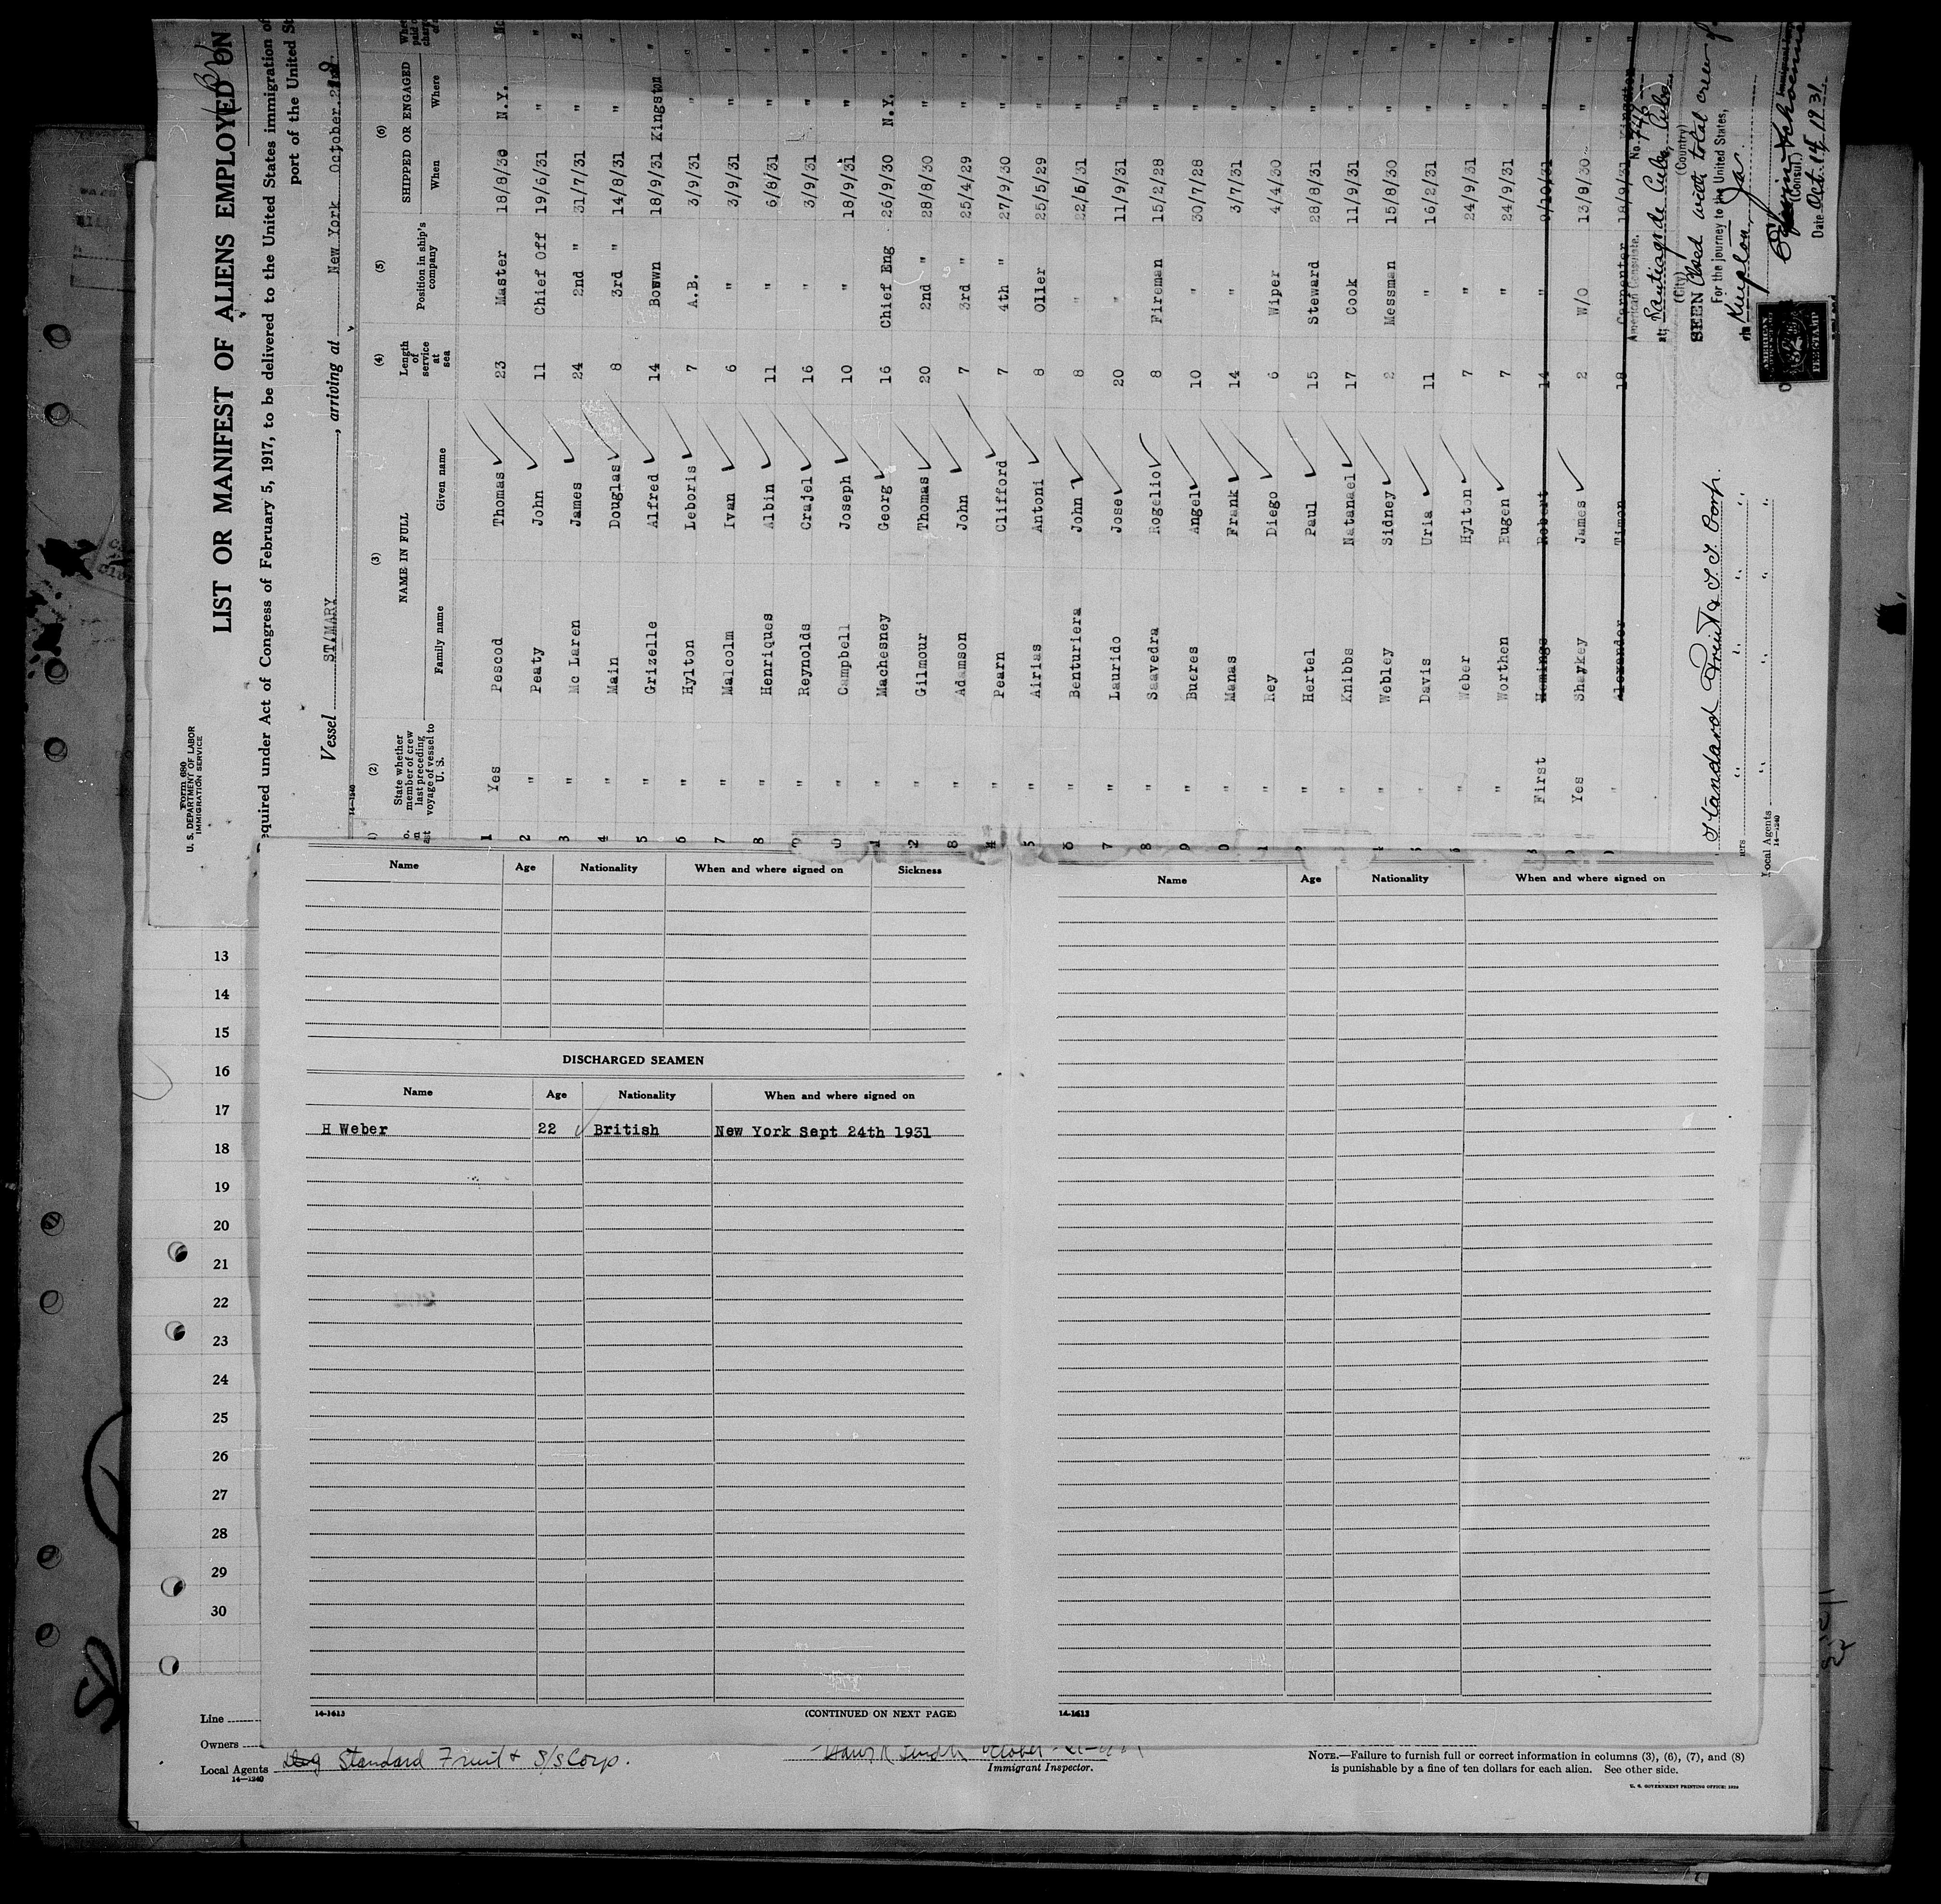 Form 680
U. S. DEPARTMENT OF LABOR
IMMIGRATION SERVICE
LIST OR MANIFEST OF ALIENS EMPLOYED ON
equired under Act of Congress of February 5, 1917, to be delivered to the United States immigration of
port of the United St
Vessel ST/MARY, arriving at New York October.
14-1240
(2) (3) (4) (5) (6)
State whether member of crew last preceding voyage of vessel to U. S.
NAME IN FULL
Family name Given name
Length of service at sea
Position in ship's company
SHIPPED OR ENGAGED
When Where
1 Yes Pescod Thomas 23 Master 18/8/30 N.Y.
2 " Peaty John 11 Chief Off 19/6/31 "
3 " Mc Laren James 24 2nd " 31/7/31 "
4 " Main Douglas 8 3rd " 14/8/31 "
5 " Grizelle Alfred 14 Boswn 18/9/31 Kingston
6 " Hylton Leboris 7 A.B. 3/9/31 "
7 " Malcolm Ivan 6 " 3/9/31 "
8 " Henriques Albin 11 " 6/8/31 "
9 " Reynolds Crajel 16 " 3/9/31 "
0 " Campbell Joseph 10 " 18/9/31 "
1 " Machesney Georg 16 Chief Eng 26/9/30 N.Y.
2 " Gilmour Thomas 20 2nd " 28/8/30 "
" Adamson John 7 3rd " 25/4/29 "
4 " Pearn Clifford 7 4th " 27/9/30 "
5 " Airias Antoni 8 Oiler 25/5/29 "
6 " Benturiera John 8 " 22/5/31 "
7 " Laurido Jose 20 " 11/9/31 "
8 " Saavedra Rogelio 8 Fireman 15/2/28 "
9 " Bueres Angel 10 " 30/7/28 "
0 " Manas Frank 14 " 3/7/31 "
1 " Rey Diego 6 Wiper 4/4/30 "
" Hertel Paul 15 Steward 28/8/31 "
" Knibbs Natanael 17 Cook 11/9/31 "
" Webley Sidney 2 Messman 15/8/30 "
" Davis Uria 11 " 16/2/31 "
" Weber Hylton 7 " 24/9/31 "
" Worthen Eugen 7 " 24/9/31 "
First Hemings Robert 14 " 9/10/31 "
Yes Shaykey James 2 W/O 13/8/30 "
" Alexander Timon 18 Carpenter 18/9/31 Kingston
American Consulate, No. 746
at; Santiago de Cuba, Cuba
(City) (Country)
SEEN
For the journey to the United States,
via Kingston, Ja
(Consul.)
Date Oct. 14, 1931
AMERICAN
FEE STAMP
Standard Fruit & S. S. Corp.
ners " " " "
Local Agents " " " "
14-1240
Name Age Nationality When and where signed on Sickness
DISCHARGED SEAMEN
Name Age Nationality When and where signed on
H Weber 22 British New York Sept 24th 1931
14-1613 (CONTINUED ON NEXT PAGE)
Name Age Nationality When and where signed on
14-1613
13
14
15
16
17
18
19
20
21
22
23
24
25
26
27
28
29
30
Line
Owners
Local Agents Standard Fruit & S/S Corp.
14-1240
Immigrant Inspector.
NOTE.—Failure to furnish full or correct information in columns (3), (6), (7), and (8)
is punishable by a fine of ten dollars for each alien. See other side.
U. S. GOVERNMENT PRINTING OFFICE: